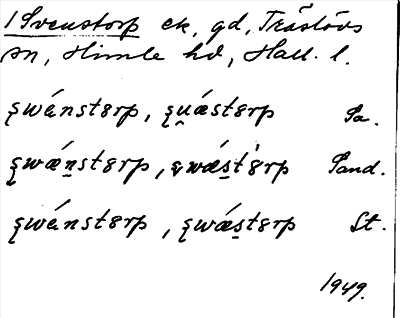 1 Svenstorp ek, gd, Träslövs
sn, Himle hd, Hall. l.
s̨wǽnstɐrp, s̨u̯ǽstɐrp Sa.
s̨wǽn̲stɐrp, s̨wǽs̲tɐrp Sand.
s̨wǽnstɐrp, s̨wǽs̲tɐrp St.
1949.